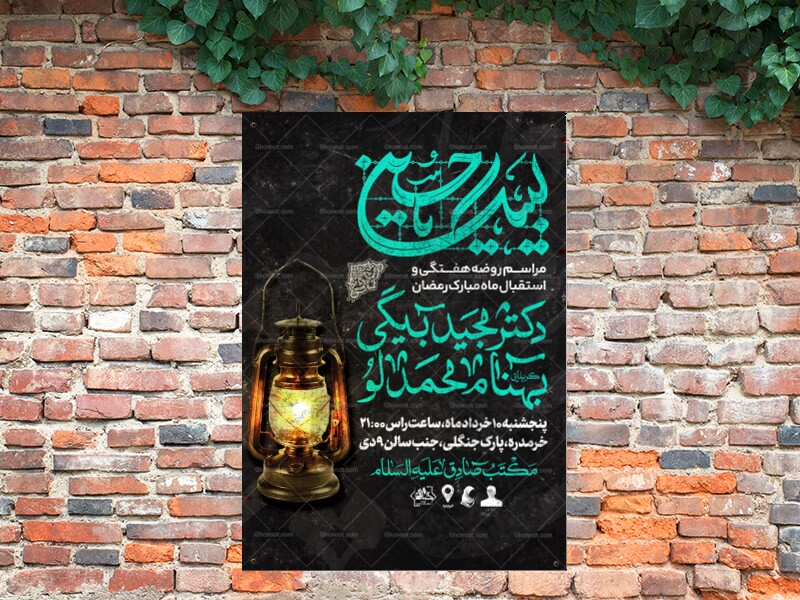 مراسم روضه هفتگی و
استقبال ماه مبارک رمضان
دکتر مجید بیگی
کربلایی
بهنام محمدلو
پنجشنبه ۱۰ خردادماه، ساعت راس ۲۱:۰۰
خرمدره، پارک جنگلی، جنب سالن ۹ دی
مکتب صادق علیه السلام
Ghonoot.com